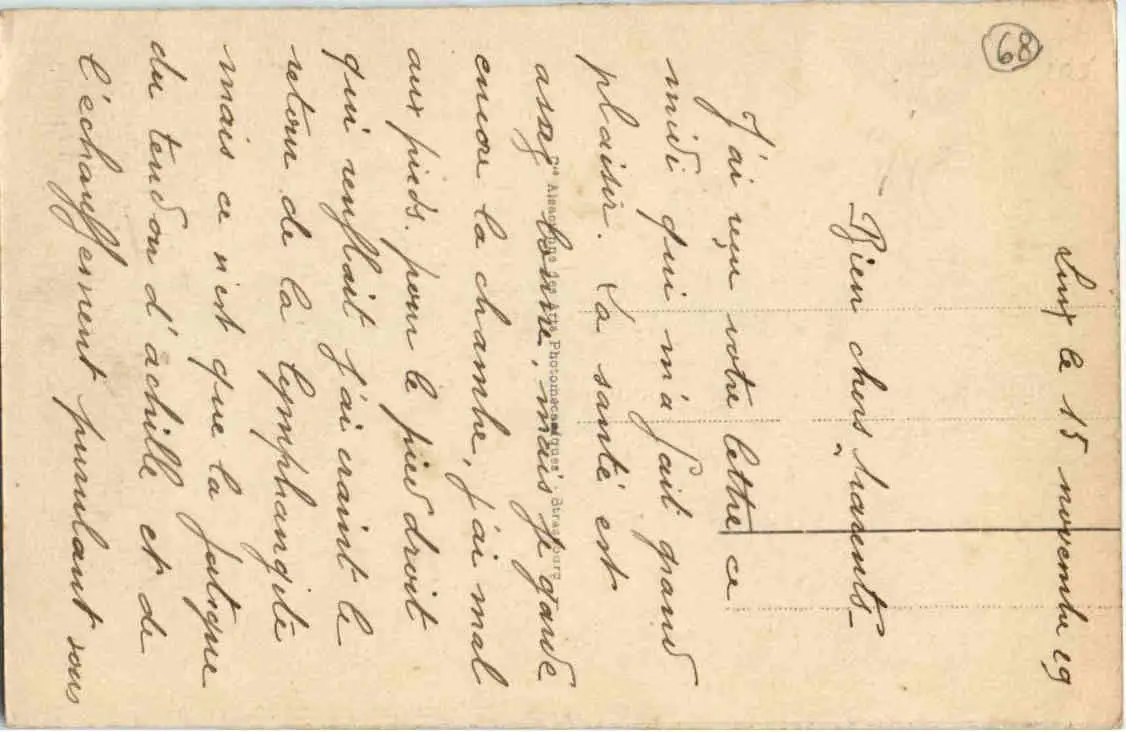 68
le 15 novembre 29
Bien chers parents -
J'ai reçu votre lettre ce
midi qui m'a fait grand
plaisir. La santé est
assez bonne, mais je garde
encore la chambre, j'ai mal
aux pieds. pour le pied droit
qui renflait j'ai craint le
retour de la lymphangite
mais ce n'est que la fatigue
du tendon d'achille et de
l'échauffement purulant sous
Cie Alsacienne des Arts Photomécaniques, Strasbourg